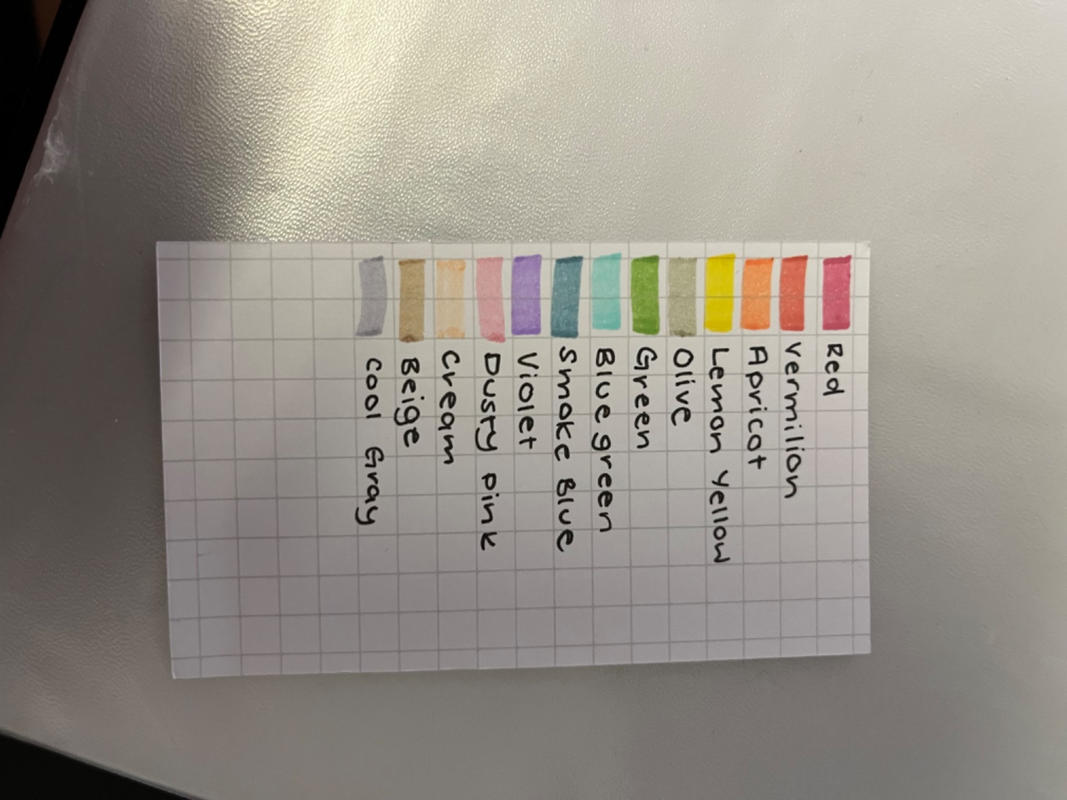 Red
Vermilion
Apricot
Lemon Yellow
Olive
Green
Blue green
Smoke Blue
Violet
Dusty Pink
Cream
Beige
Cool Gray